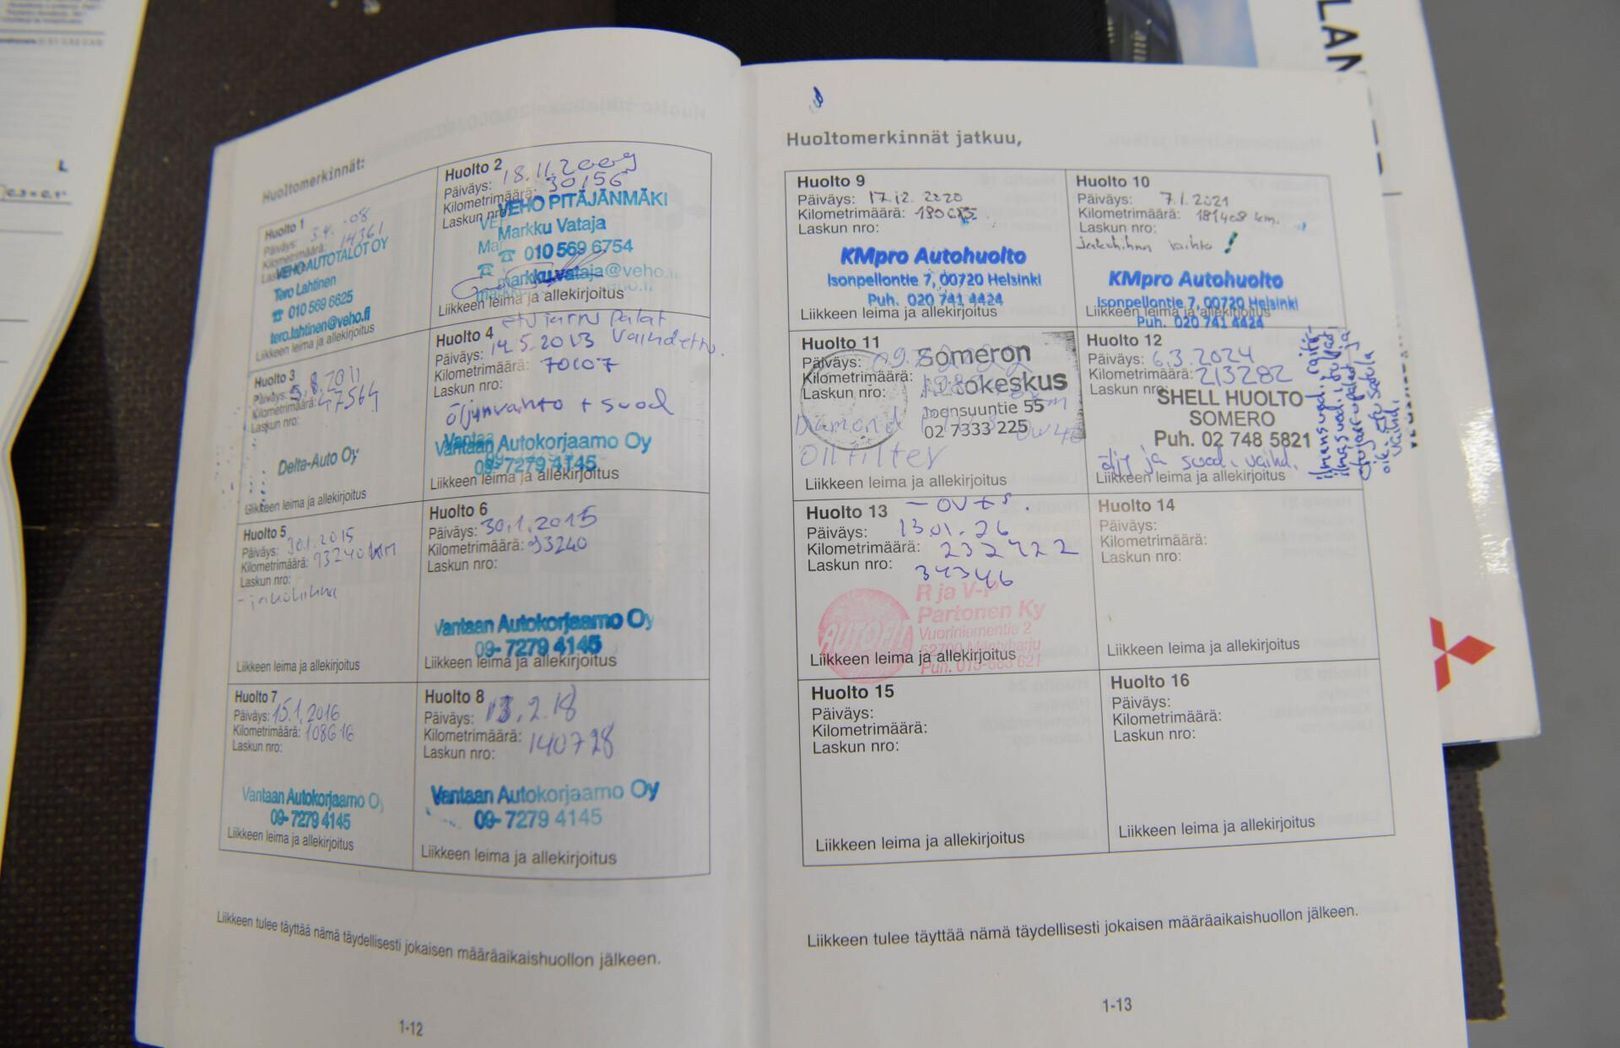 Huoltomerkinnät:
Huolto 1
Päiväys: -08
Kilometrimäärä: 14361
VEHO AUTOTALOT OY
Tero Lahtinen
☎ 010 569 6625
tero.lahtinen@veho.fi
Liikkeen leima ja allekirjoitus
Huolto 2
Päiväys: 18.11.2009
Kilometrimäärä: 30156
Laskun nro:
VEHO PITÄJÄNMÄKI
Markku Vataja
☎ 010 569 6754
markku.vataja@veho.
Liikkeen leima ja allekirjoitus
Huolto 3
Päiväys: 5.8.2011
Kilometrimäärä: 47564
Laskun nro:
Delta-Auto Oy
Liikkeen leima ja allekirjoitus
Huolto 4
etujarru palat
vaihdettu.
Päiväys: 14.5.2013
Kilometrimäärä: 70107
Laskun nro:
öljynvaihto + suod
Vantaan Autokorjaamo Oy
09-7279 4145
Liikkeen leima ja allekirjoitus
Huolto 5
Päiväys: 30.1.2015
Kilometrimäärä: 93240 KM
Laskun nro:
- jakohihna
Liikkeen leima ja allekirjoitus
Huolto 6
Päiväys: 30.1.2015
Kilometrimäärä: 93240
Laskun nro:
Vantaan Autokorjaamo Oy
09-7279 4145
Liikkeen leima ja allekirjoitus
Huolto 7
Päiväys: 15.1.2016
Kilometrimäärä: 108616
Laskun nro:
Vantaan Autokorjaamo O
09-7279 4145
Liikkeen leima ja allekirjoitus
Huolto 8
Päiväys: 13.2.18
Kilometrimäärä: 140728
Laskun nro:
Vantaan Autokorjaamo Oy
09-7279 4145
Liikkeen leima ja allekirjoitus
Liikkeen tulee täyttää nämä täydellisesti jokaisen määräaikaishuollon jälkeen.
1-12
Huoltomerkinnät jatkuu,
Huolto 9
Päiväys: 17.12.2020
Kilometrimäärä:
Laskun nro:
KMpro Autohuolto
Isonpellontie 7, 00720 Helsinki
Puh. 020 741 4424
Liikkeen leima ja allekirjoitus
Huolto 10
Päiväys: 7.1.2021
Kilometrimäärä: 181408 km.
Laskun nro:
Jakohihnan vaihto !
KMpro Autohuolto
Isonpellontie 7, 00720 Helsinki
Liikkeen leima ja allekirjoitus
Puh. 020 741 4424
Huolto 11
Päiväys:
Kilometrimäärä:
Laskun nro:
Someron
Autokeskus
Joensuuntie 55
02 7333 225
Diamond 0w40
Oilfilter
Liikkeen leima ja allekirjoitus
Huolto 12
Päiväys: 6.3.2024
Kilometrimäärä: 213282
Laskun nro:
SHELL HUOLTO
SOMERO
Puh. 02 748 5821
öljy ja suod. vaihd.
Liikkeen leima ja allekirjoitus
ilmansuod.
etujarrupalat ja
oik. etu satula
vaihd.
Huolto 13
Päiväys: 13.01.26
Kilometrimäärä: 232422
Laskun nro: 34346
AUTOFIT
R ja V-P
Partonen Ky
Vuoriniementie 2
Liikkeen leima ja allekirjoitus
Huolto 14
Päiväys:
Kilometrimäärä:
Laskun nro:
Liikkeen leima ja allekirjoitus
Huolto 15
Päiväys:
Kilometrimäärä:
Laskun nro:
Liikkeen leima ja allekirjoitus
Huolto 16
Päiväys:
Kilometrimäärä:
Laskun nro:
Liikkeen leima ja allekirjoitus
Liikkeen tulee täyttää nämä täydellisesti jokaisen määräaikaishuollon jälkeen.
1-13